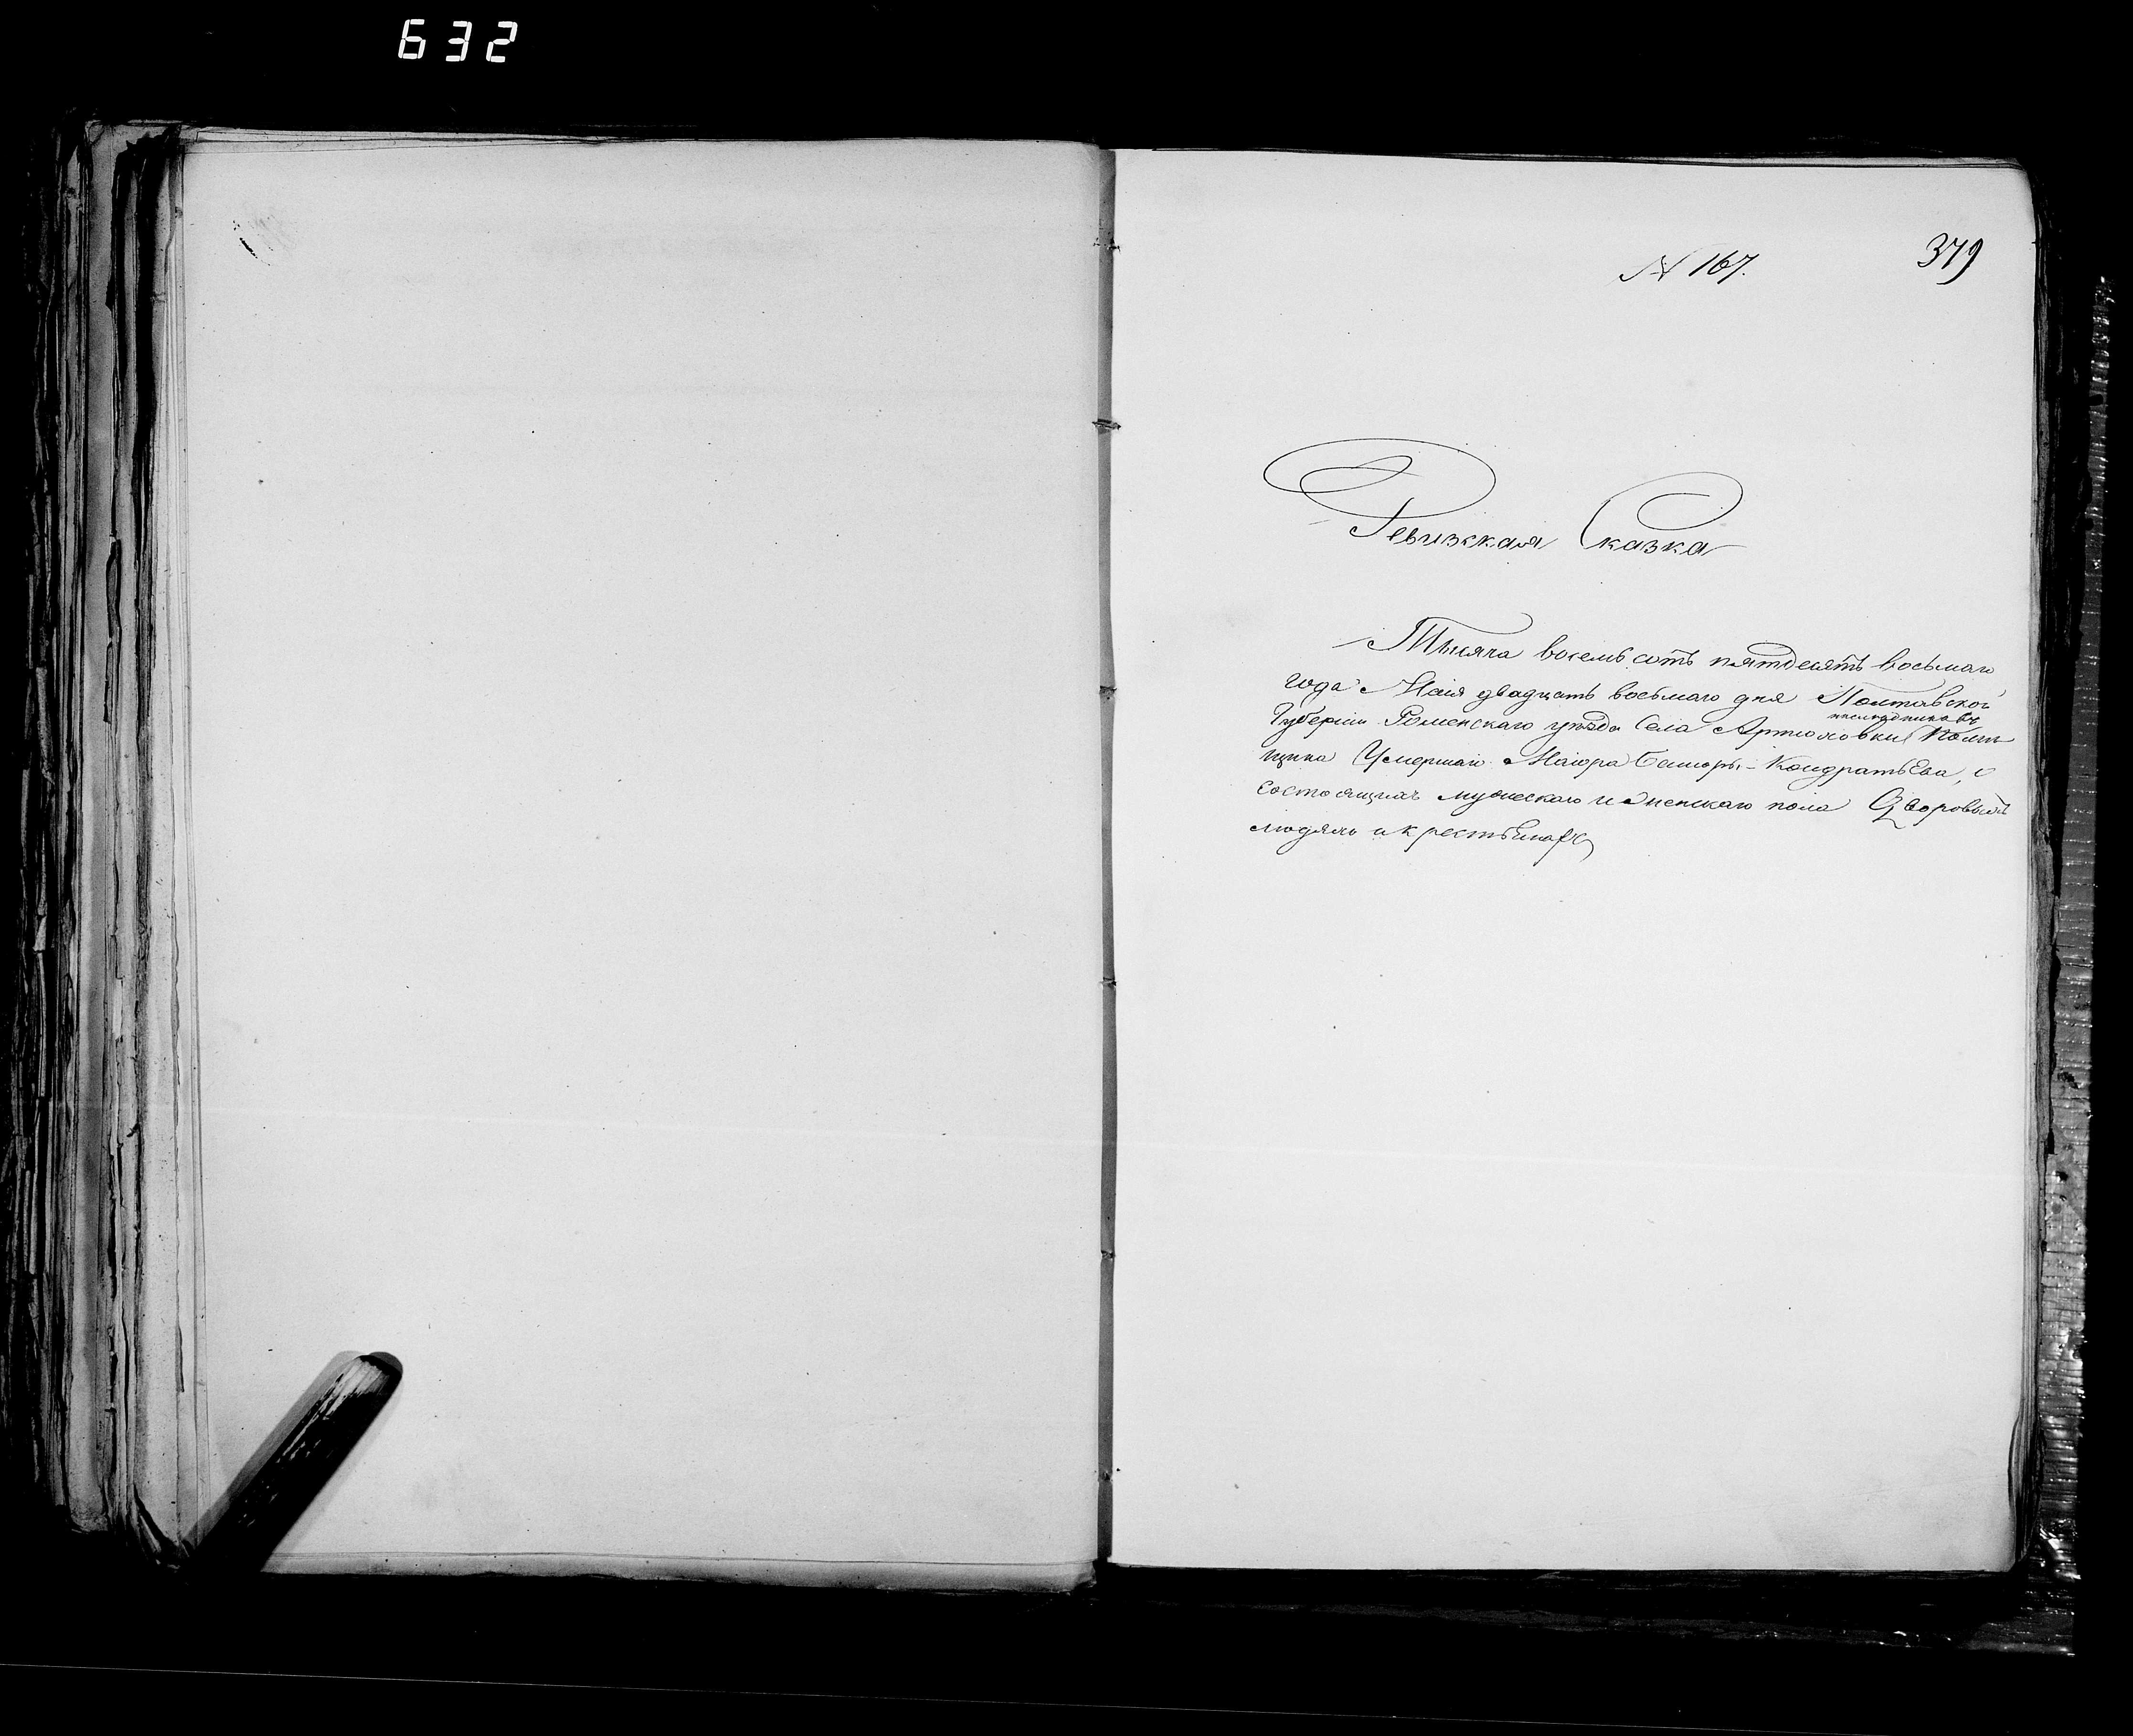 632
379
№ 167.
Ревизская Сказка
Тысяча восемь сотъ пятдесятъ восьмаго
года Маія двадцать восьмаго дня Полтавской
Губерніи Роменскаго уѣзда Села Артюховки Помѣ
наслѣдниковъ
щика Умершаго Маіора Кондратьева, о
состоящихъ мужескаго и женскаго пола Дворовыхъ
людяхъ и крестьянахъ